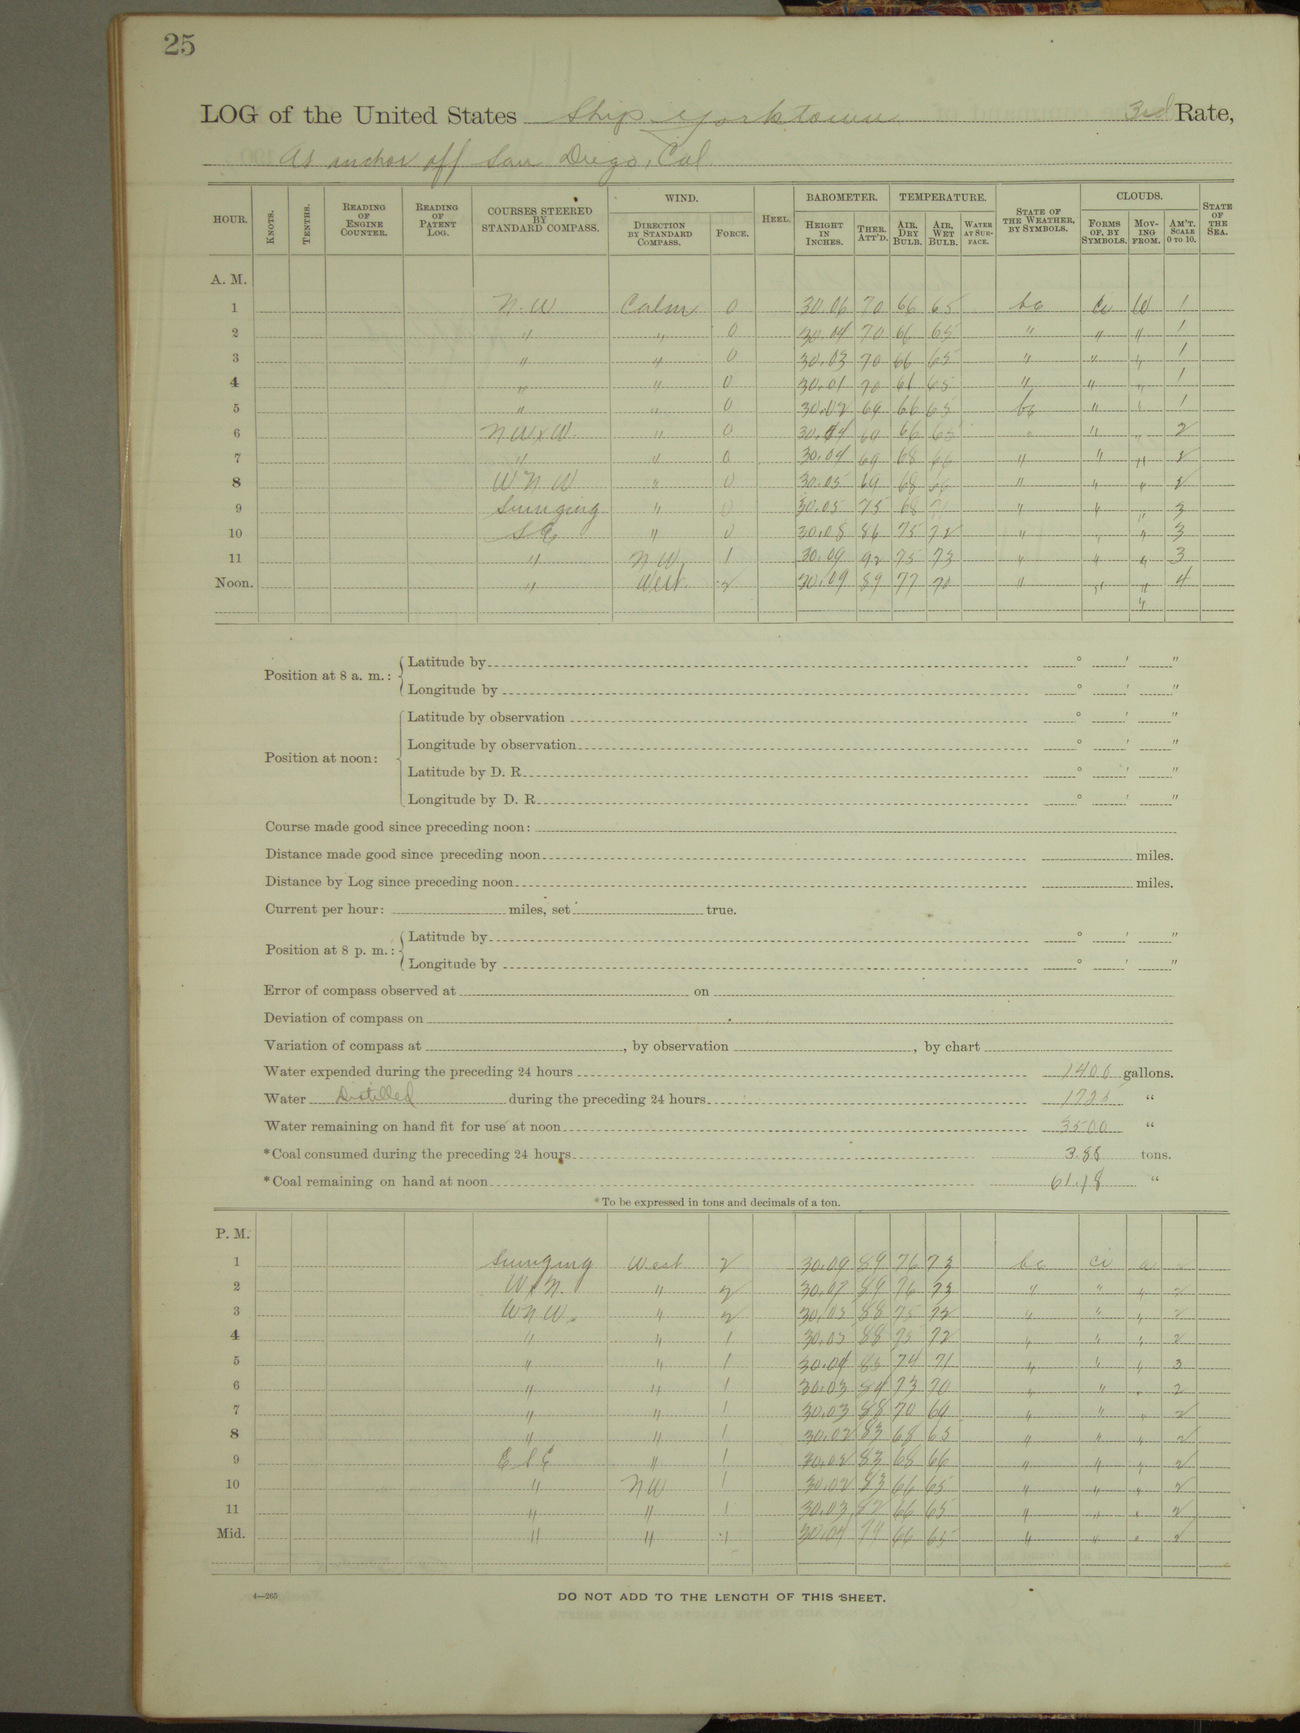 25
LOG of the United States Ship Yorktown 3rd Rate,
At anchor off San Diego, Cal
HOUR. KNOTS. TENTHS. READING OF ENGINE COUNTER. READING OF PATENT LOG. COURSES STEERED BY STANDARD COMPASS. WIND. DIRECTION BY STANDARD COMPASS. FORCE. HEEL. BAROMETER. HEIGHT IN INCHES. THER. ATT'D. TEMPERATURE. AIR, DRY BULB. AIR, WET BULB. WATER AT SURFACE. STATE OF THE WEATHER, BY SYMBOLS. CLOUDS. FORMS OF, BY SYMBOLS. MOVING FROM. AM'T. SCALE 0 TO 10. STATE OF THE SEA.
A. M.
1 N. W Calm 0 30.06 70 66 65 bc Ci W 1
2 " " 0 30.04 70 66 65 " " " 1
3 " " 0 30.03 70 66 65 " " " 1
4 " " 0 30.01 70 61 65 " " " 1
5 " " 0 30.02 69 66 65 bc " " 1
6 NWxW. " 0 30.04 66 65 " " " 2
7 " " 0 30.04 69 68 66 " " " 2
8 WNW " 0 30.05 69 68 " " " 2
9 Swinging " 0 30.05 75 68 71 " " " 3
10 SE " 0 30.08 86 75 72 " " " 3
11 " NW 1 30.09 92 75 73 " " " 3
Noon. " West. 2 30.09 89 77 70 " " " 4
"
Position at 8 a. m.: Latitude by ° ′ ″
Longitude by ° ′ ″
Position at noon: Latitude by observation ° ′ ″
Longitude by observation ° ′ ″
Latitude by D. R. ° ′ ″
Longitude by D. R. ° ′ ″
Course made good since preceding noon:
Distance made good since preceding noon miles.
Distance by Log since preceding noon miles.
Current per hour: miles, set true.
Position at 8 p. m.: Latitude by ° ′ ″
Longitude by ° ′ ″
Error of compass observed at on
Deviation of compass on
Variation of compass at , by observation , by chart
Water expended during the preceding 24 hours 1400 gallons.
Water Distilled during the preceding 24 hours 1725 "
Water remaining on hand fit for use at noon 3500 "
*Coal consumed during the preceding 24 hours 3.88 tons.
*Coal remaining on hand at noon 61.18 "
*To be expressed in tons and decimals of a ton.
P. M.
1 Swinging West 2 30.09 89 76 73 bc ci
2 WxN. " 2 30.07 89 76 73 " " " 2
3 WNW. " 2 30.05 88 75 72 " " " 2
4 " " 1 30.05 88 73 72 " " " 2
5 " " 1 30.04 85 74 71 " " " 3
6 " " 1 30.03 84 73 70 " " " 2
7 " " 1 30.03 88 70 69 " " " 2
8 " " 1 30.02 83 68 65 " " " 2
9 ESE " 1 30.02 83 68 66 " " " 2
10 " NW 1 30.02 83 66 65 " " " 2
11 " " 1 30.03 82 66 65 " " " 2
Mid. " " 1 30.04 79 66 65 " " " 2
4—265
DO NOT ADD TO THE LENGTH OF THIS SHEET.